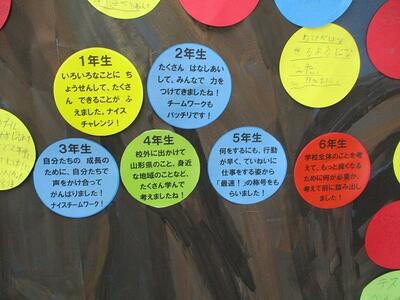 1年生
いろいろなことに ち
ょうせんして、たくさ
ん できることが ふ
えました。ナイス
チャレンジ！
2年生
たくさん はなしあい
して、みんなで 力を
つけてきましたね！
チームワークも
バッチリです！
3年生
自分たちの 成長の
ために、自分たちで
声をかけ合って
がんばりました！
ナイスチームワーク！
4年生
校外に出かけて
山形県のこと、身近
な地域のことなど、
たくさん学んで
考えましたね！
5年生
何をするにも、行動
が早く、ていねいに
仕事をする姿から
「最速！」の称号をも
らいました！
6年生
学校全体のことを考
えて、もっと良くなる
ために何が必要か、
考えて前に踏み出し
ました！